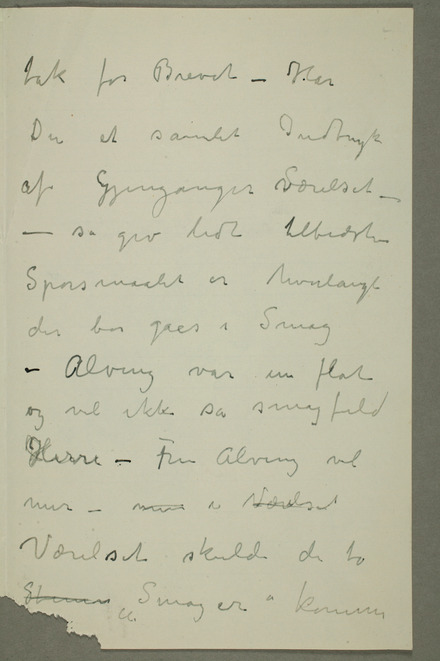 tak for Brevet – Har
Du et samlet Indtryk
af Gjenganger Værelset –
– sa gev lidt tilbedste
Sporsmaalet er hvorlangt
der bor gaes i Smag
– Alving var en flot
og vel ikke sa smagfuld
Herre – Fru Alving vel
mer – mer i Værelset
Værelset skulde de to
"Smager" komme